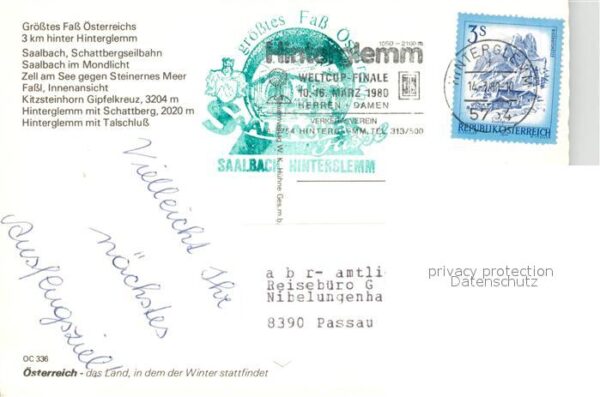 Größtes Faß Österreichs
3 km hinter Hinterglemm
Saalbach, Schattbergseilbahn
Saalbach im Mondlicht
Zell am See gegen Steinernes Meer
Faßl, Innenansicht
Kitzsteinhorn Gipfelkreuz, 3204 m
Hinterglemm mit Schattberg, 2020 m
Hinterglemm mit Talschluß
größtes Faß
1050 - 2100 m
Hinterglemm
WELTCUP-FINALE
10.-15. MÄRZ 1980
HERREN - DAMEN
VERKEHRSVEREIN
5754 HINTERGLEMM, TEL. 313/500
SAALBACH HINTERSLEMM
3S
REPUBLIK ÖSTERREICH
HINTERGLEMM
5754
Vielleicht Ihr
nächstes
Ausflugsziel!
a b r- amtli
Reisebüro G
Nibelungenha
8390 Passau
privacy protection
Datenschutz
OC 336
Österreich - das Land, in dem der Winter stattfindet